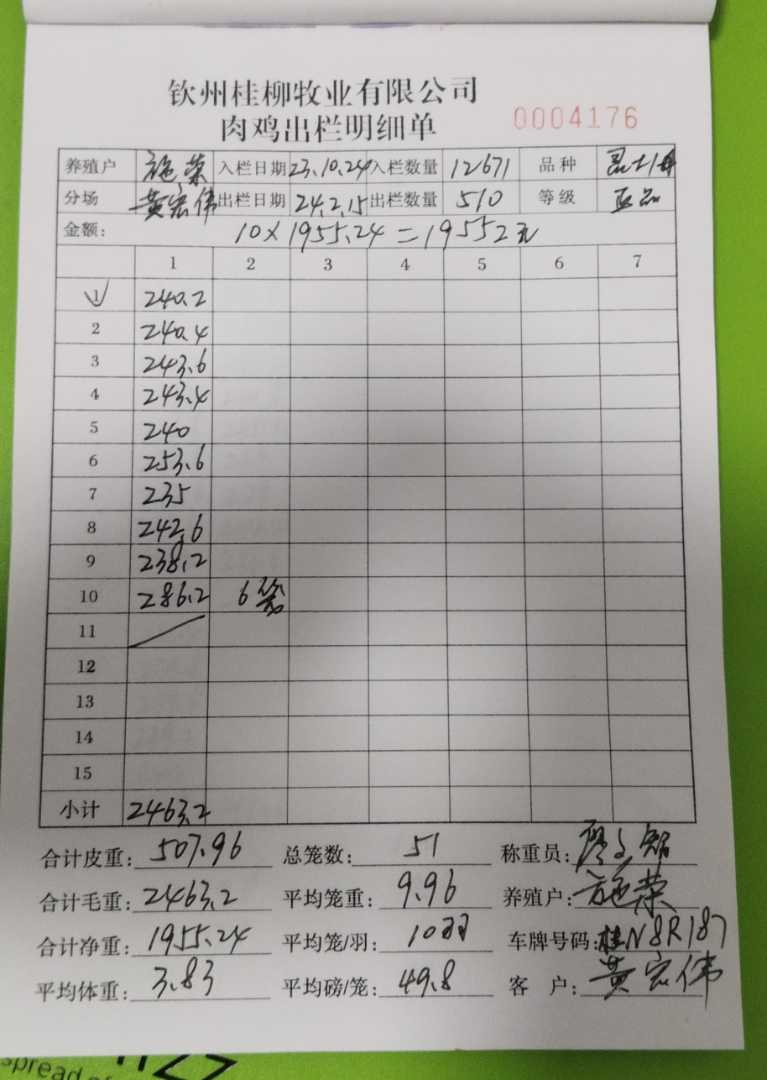 钦州桂柳牧业有限公司
肉鸡出栏明细单 0004176
养殖户 施荣 入栏日期 23.10.24 入栏数量 12671 品种
分场 黄宏伟 出栏日期 24.2.15 出栏数量 510 等级
金额: 10×1955.24=19552元
1 2 3 4 5 6 7
1 240.2
2 240.4
3 243.6
4 243.4
5 240
6 253.6
7 235
8 242.6
9 238.2
10 286.2 6笼
11
12
13
14
15
小计 2463.2
合计皮重: 507.96 总笼数: 51 称重员:
合计毛重: 2463.2 平均笼重: 9.96 养殖户: 施荣
合计净重: 1955.24 平均笼/羽: 10羽 车牌号码: 桂N8R187
平均体重: 3.83 平均磅/笼: 49.8 客户: 黄宏伟
spread